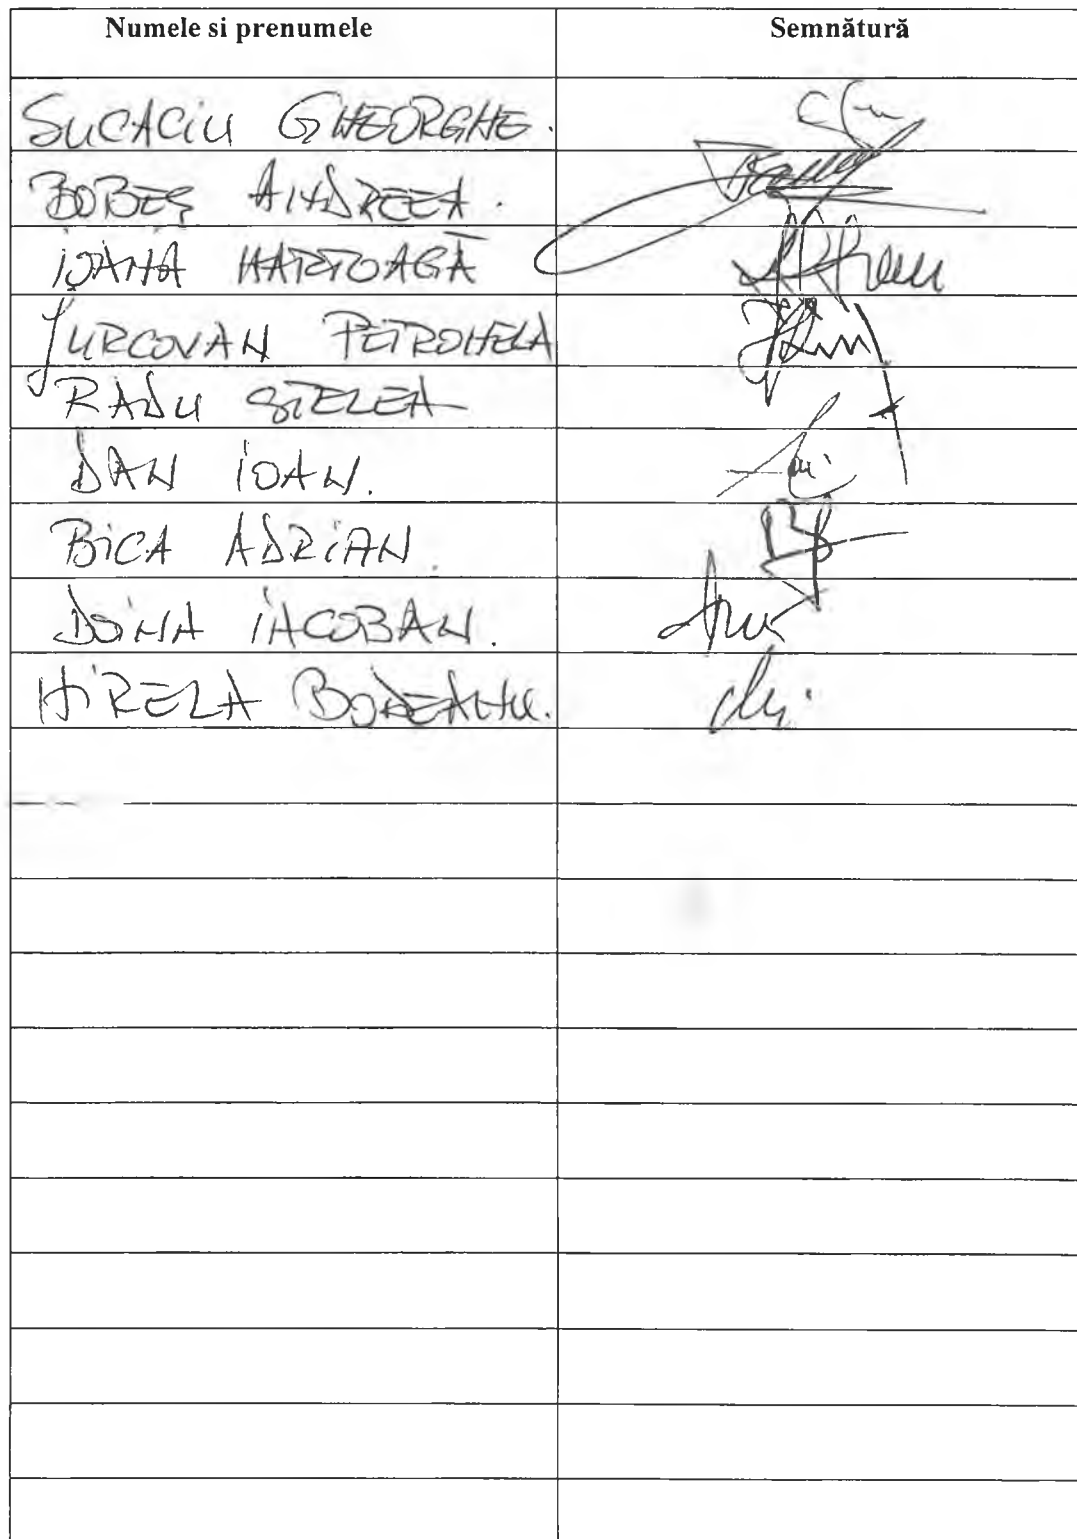 Numele si prenumele Semnătură
SUCACIU GHEORGHE.
BOBEȘ ANDREEA.
IOANA HARTOAGĂ
JURCOVAN PETRONELA
RADU STELEA
DAN IOAN.
BICA ADRIAN.
DOINA IACOBAN.
MIRELA BODEANU.